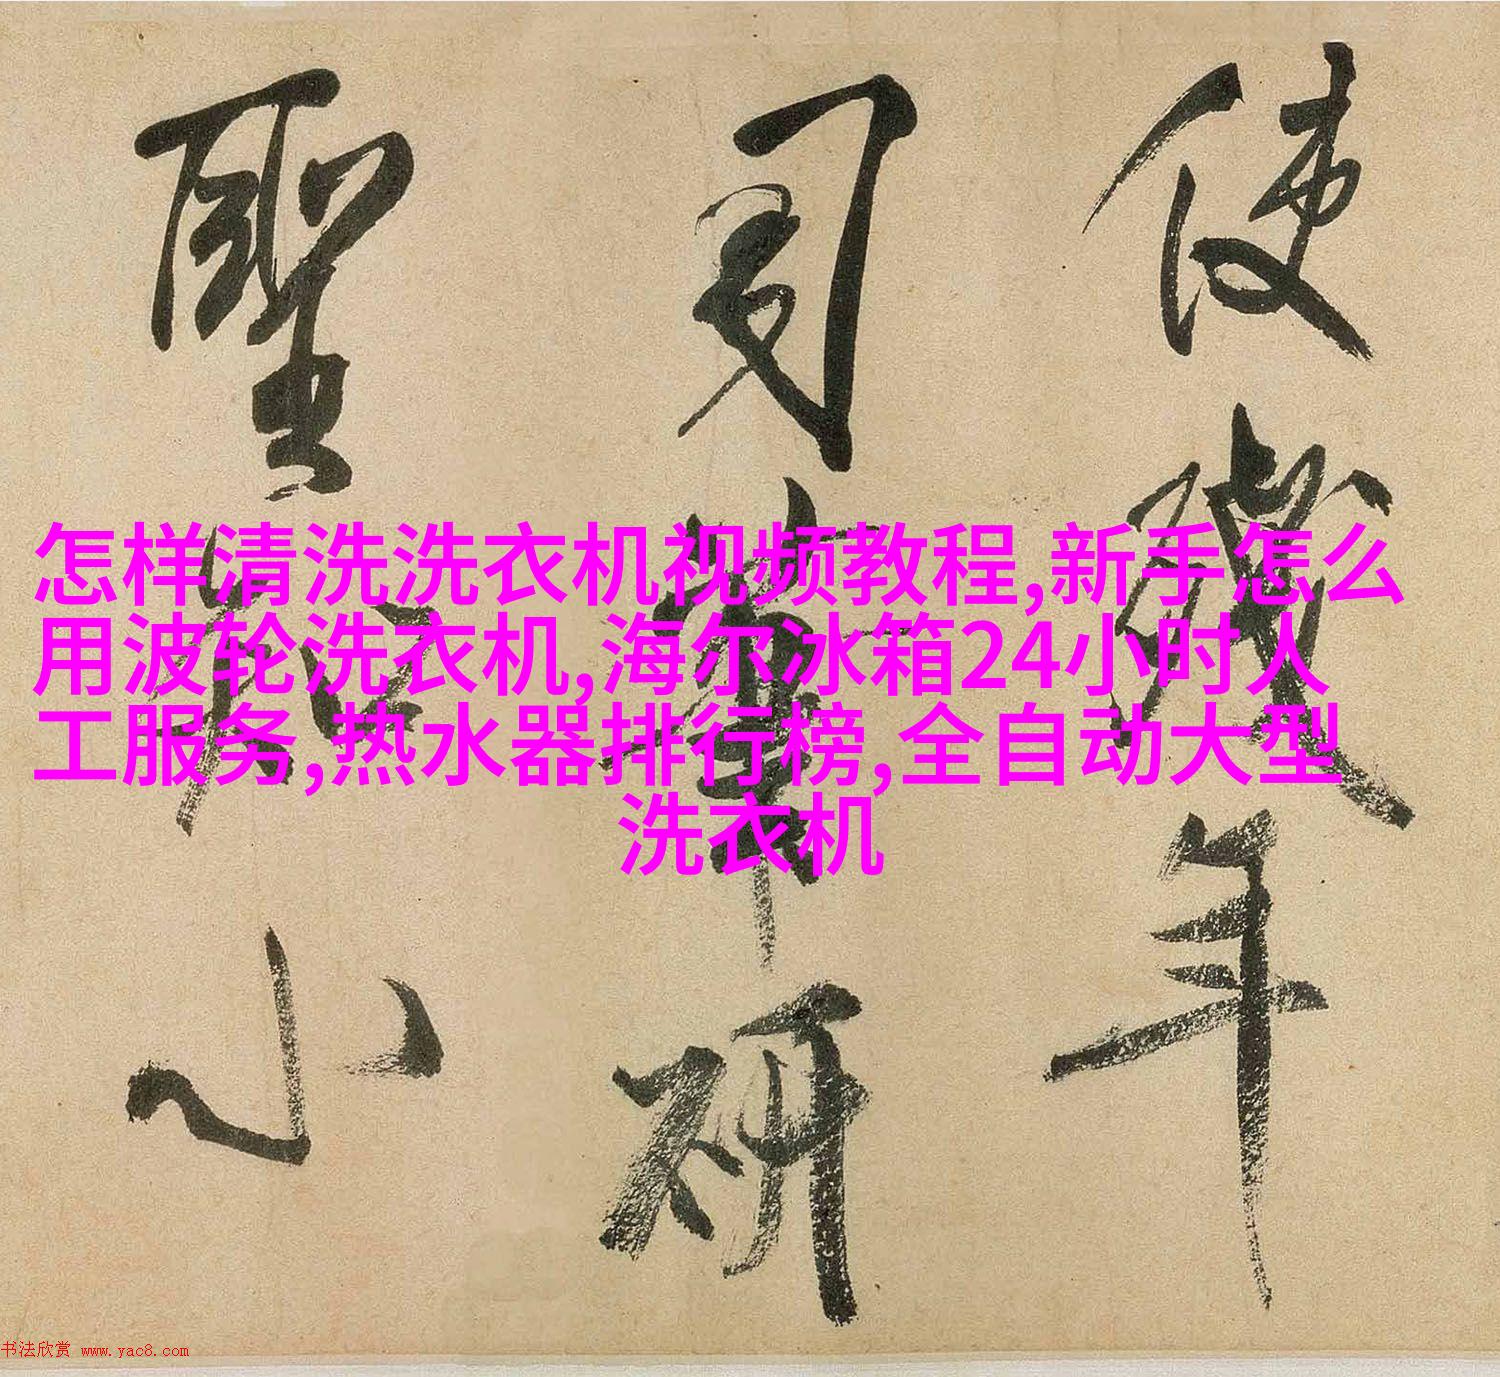 使年
研
聖
怎样清洗洗衣机视频教程,新手怎么
用波轮洗衣机,海尔冰箱24小时人
工服务,热水器排行榜,全自动大型
洗衣机
书法欣赏 www.yac8.com